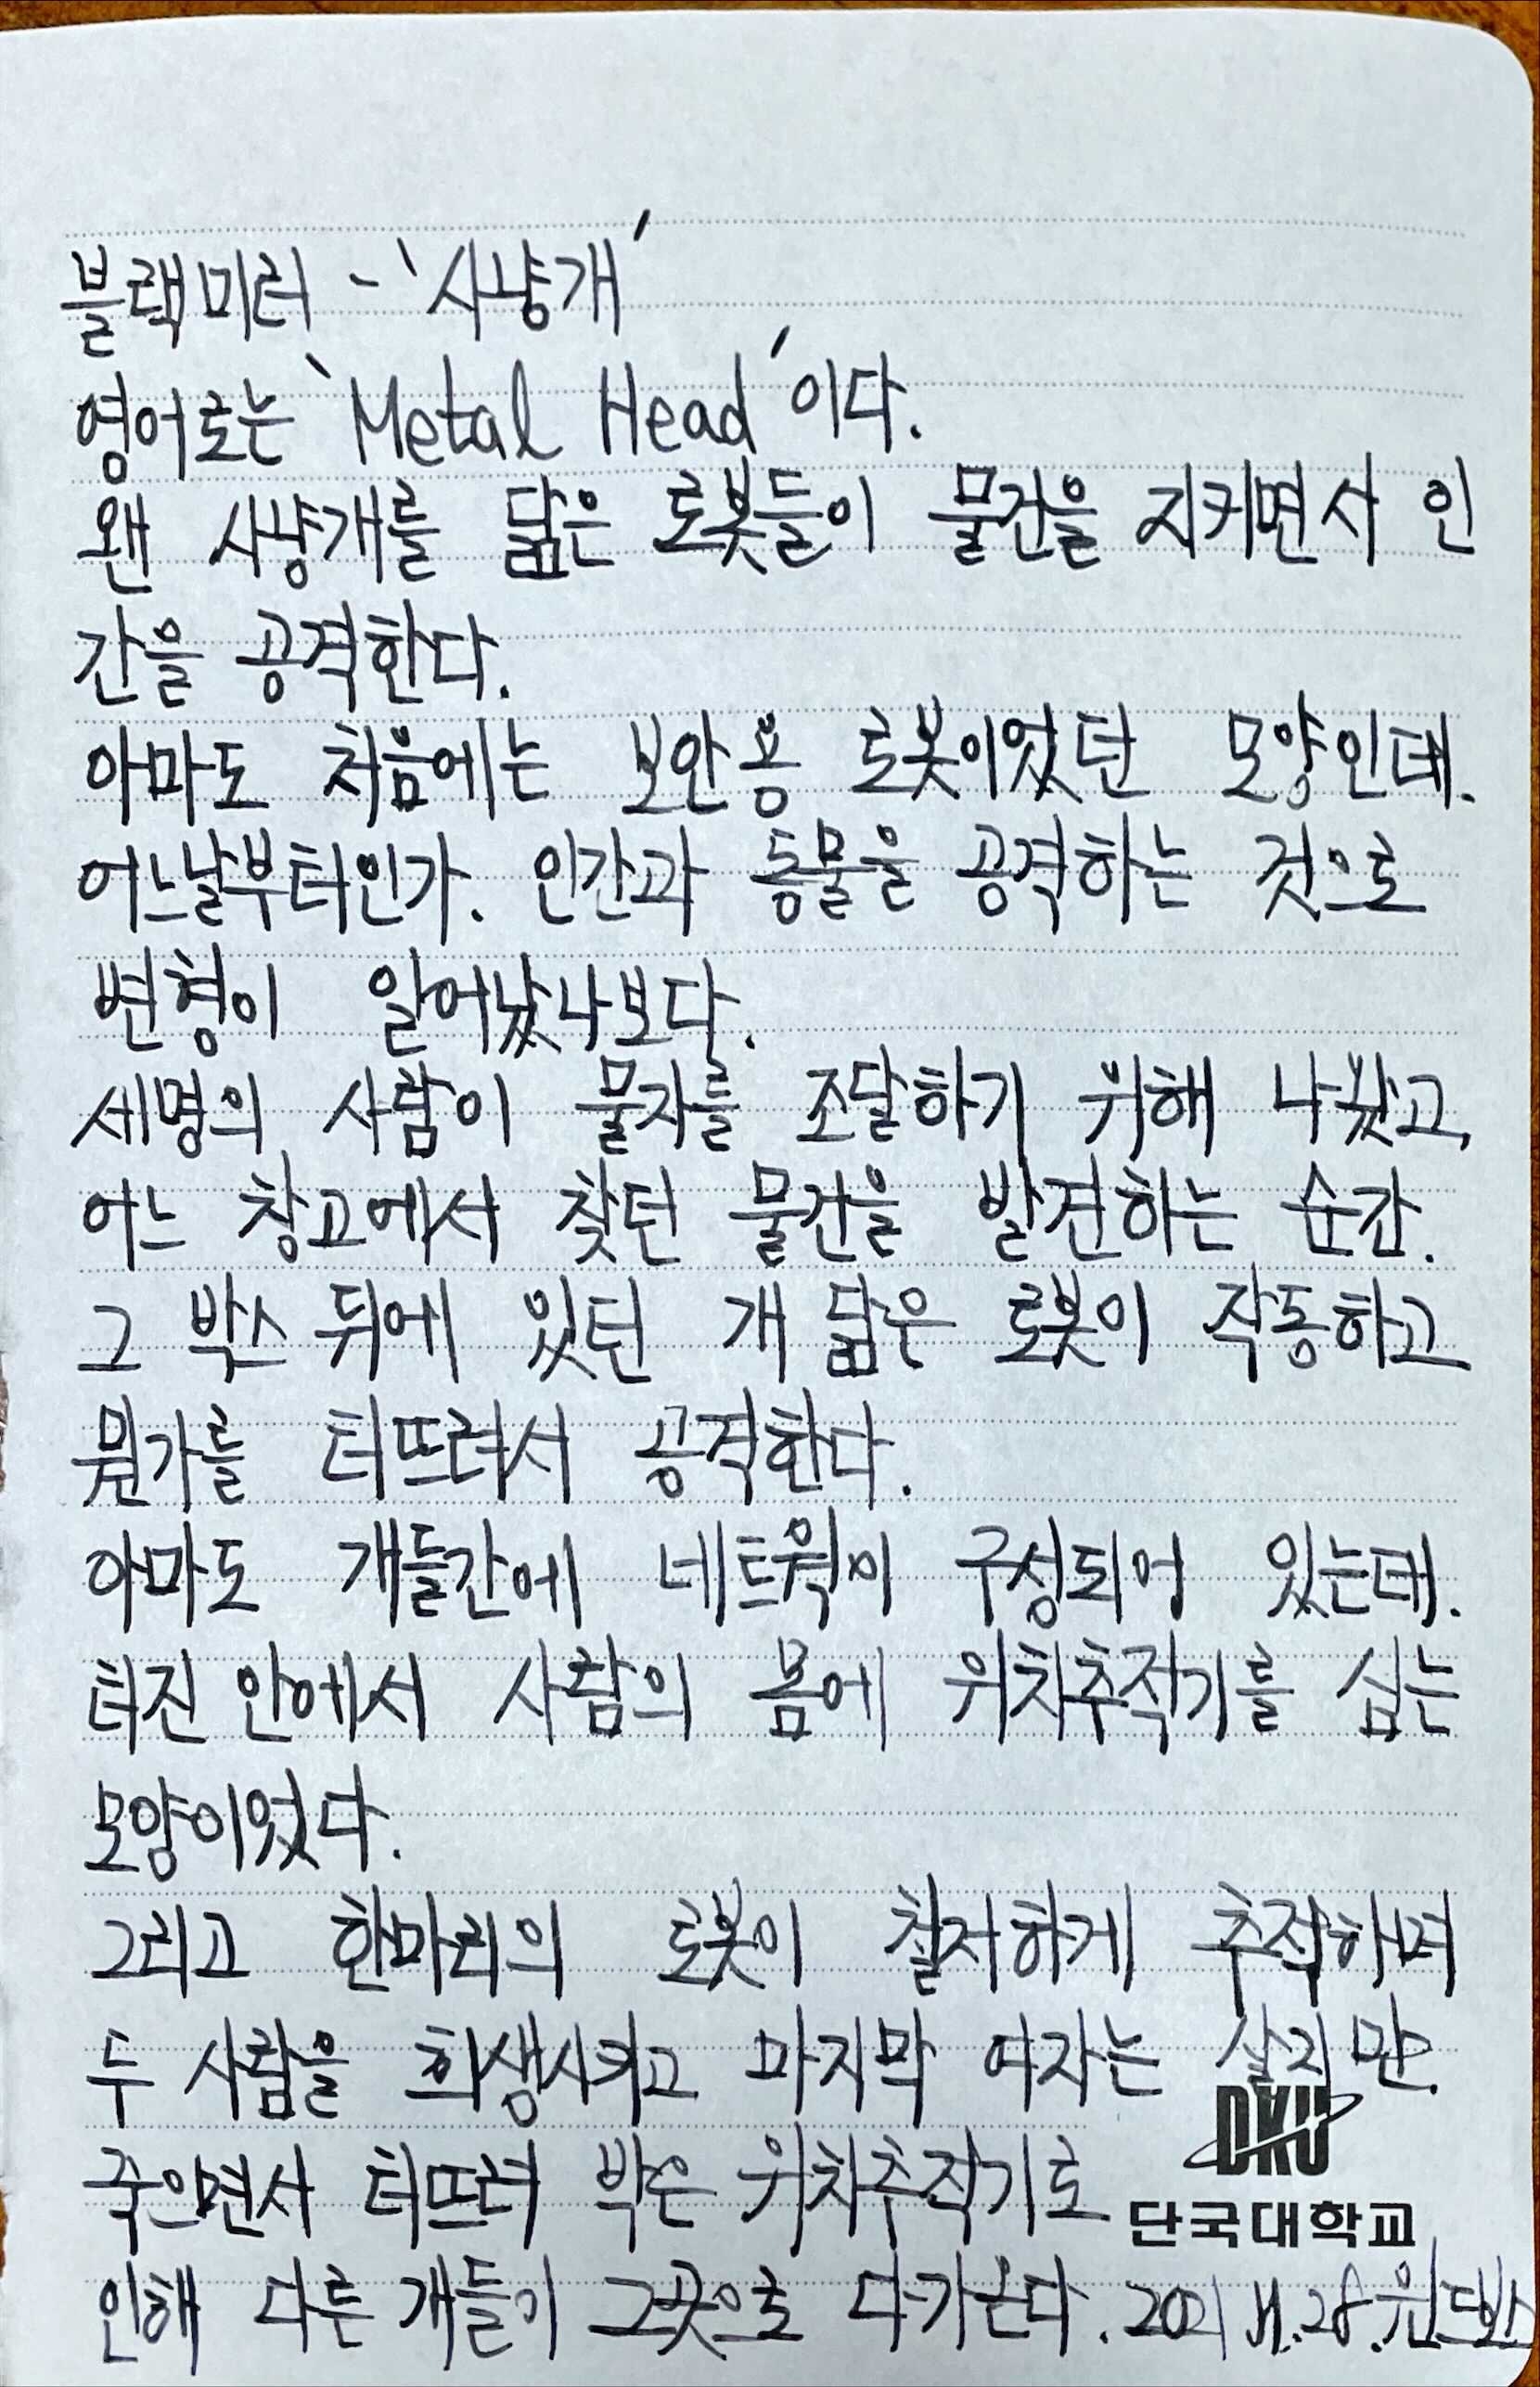 블랙미러 - '사냥개'
영어로는 'Metal Head' 이다.
왠 사냥개를 닮은 로봇들이 물건을 지키면서 인
간을 공격한다.
아마도 처음에는 보안용 로봇이었던 모양인데.
어느날부터인가. 인간과 동물을 공격하는 것으로
변형이 일어났나보다.
세명의 사람이 물자를 조달하기 위해 나섰고,
어느 창고에서 찾던 물건을 발견하는 순간.
그 박스 뒤에 있던 개 닮은 로봇이 작동하고
뭔가를 터뜨려서 공격한다.
아마도 개들간에 네트웍이 구성되어 있는데.
터진 안에서 사람의 몸에 위치추적기를 심는
모양이었다.
그리고 한마리의 로봇이 철저하게 추적하며
두 사람을 희생시키고 마지막 여자는 살지만.
죽으면서 터뜨려 박은 위치추적기로
DKU
단국대학교
인해 다른 개들이 그곳으로 다가온다. 2021.11.28. 윈드박스